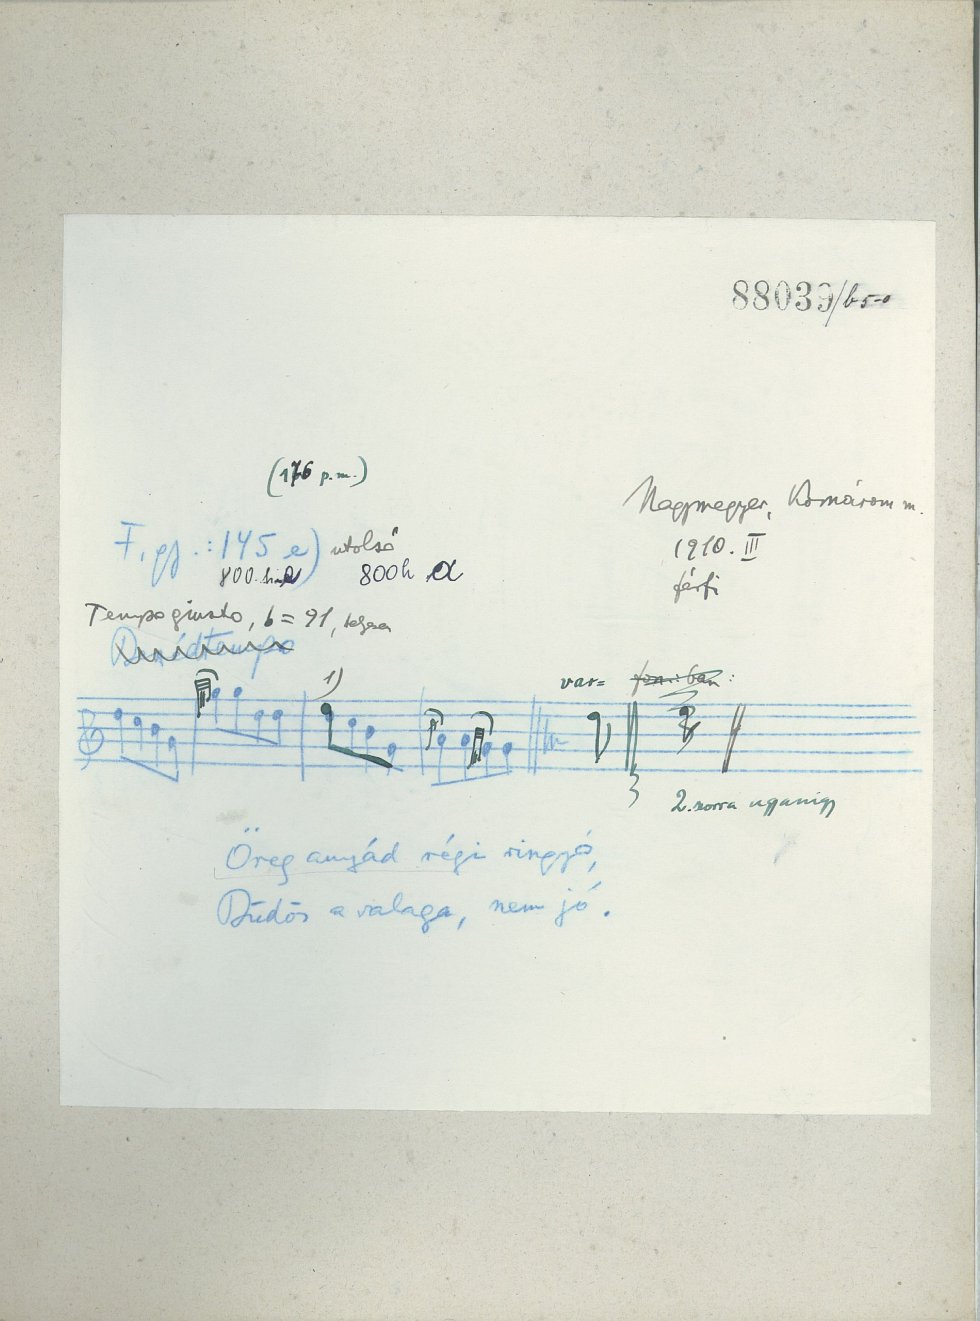 88039/b
(176 p.m.)
Nagymegyer, Komárom m.
F. gy.: 145 e) utolsó
1910. III
800
800h
férfi
Tempo giusto, = 91,
1)
var=
2. sorra ugyanígy
Öreg anyád régi ringyó,
Büdös a valaga, nem jó.